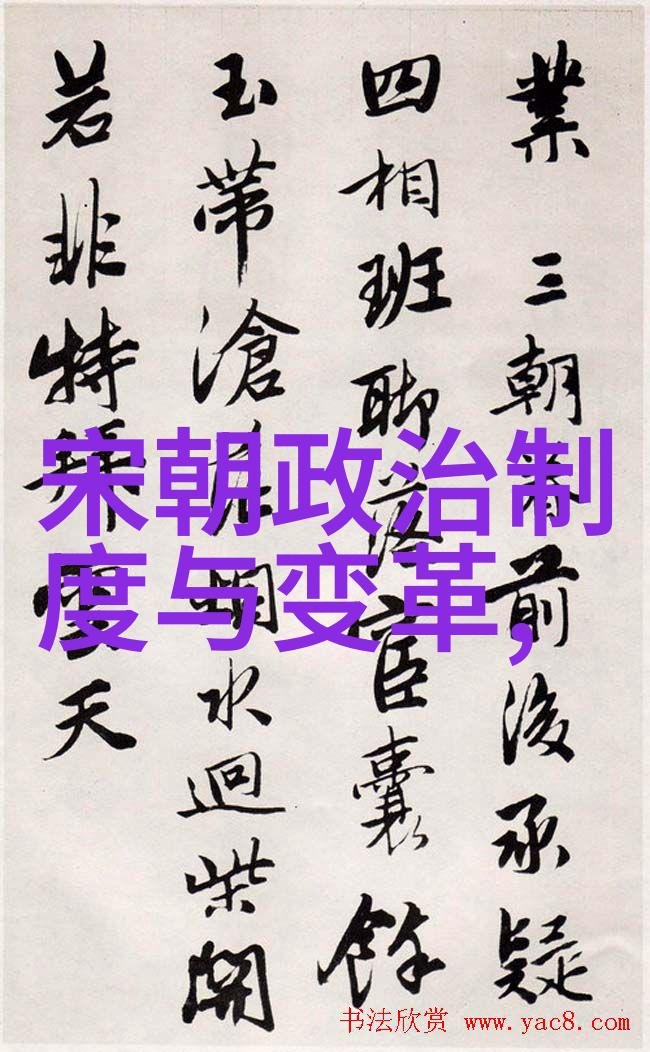 業 三朝眷前後承疑
四相班聯落宦囊餘
玉帶滄水迴柴開
若非特雪天
宋朝政治制
度与变革,
书法欣赏 www.yac8.com